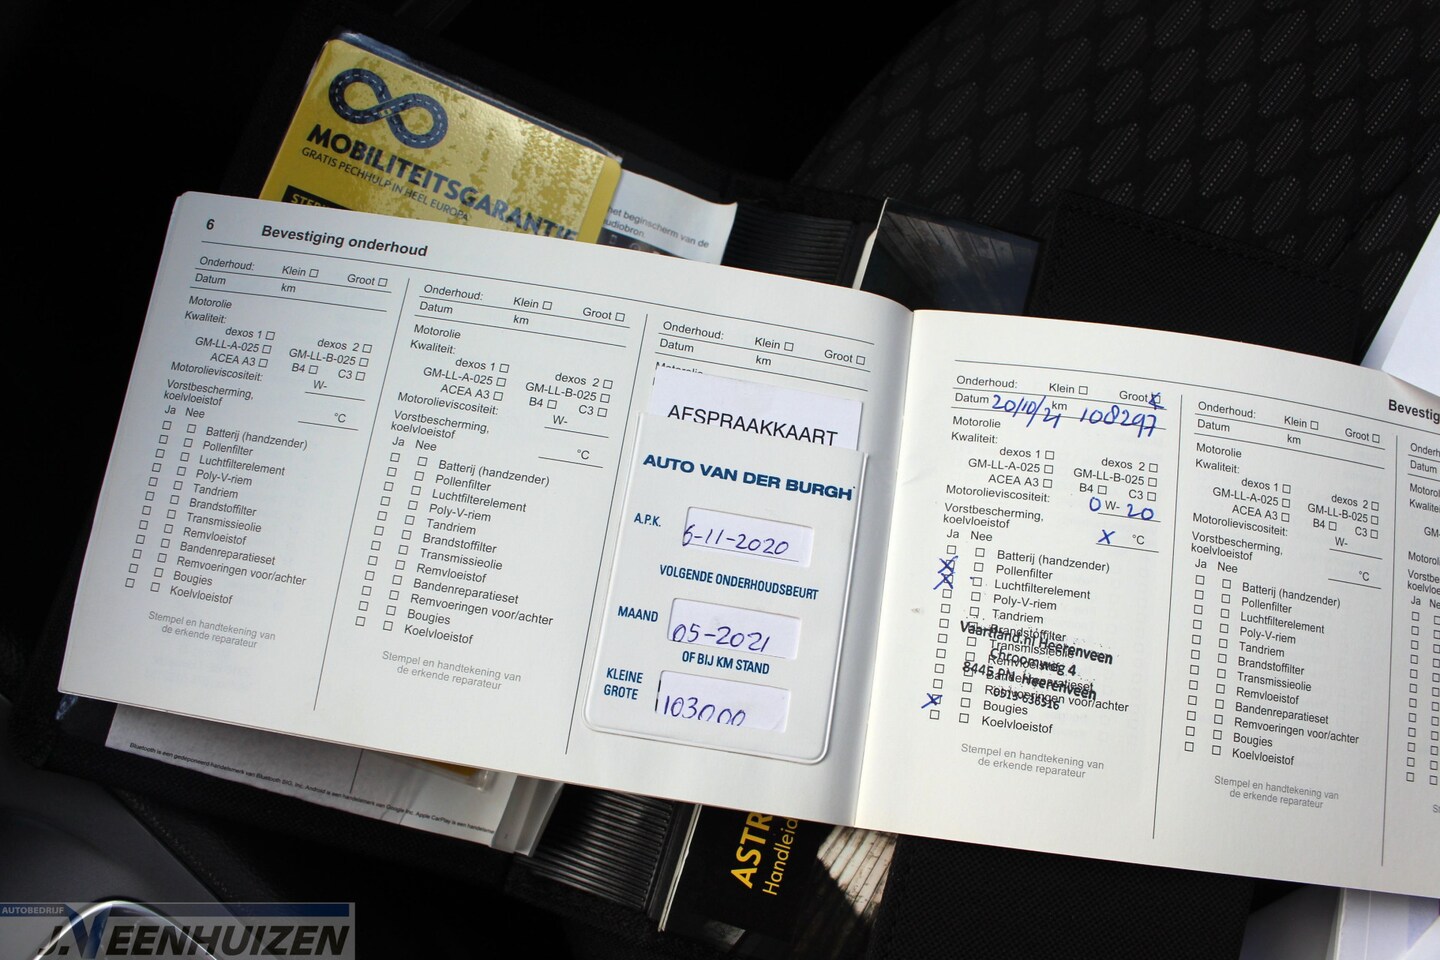 MOBILITEITSGARANTIE
GRATIS PECHHULP IN HEEL EUROPA
het beginscherm van de
6 Bevestiging onderhoud
Onderhoud: Klein □ Groot □
Datum km
Motorolie
Kwaliteit:
dexos 1 □ dexos 2 □
GM-LL-A-025 □ GM-LL-B-025 □
ACEA A3 □ B4 □ C3 □
Motorolieviscositeit: W-
Vorstbescherming,
koelvloeistof °C
Ja Nee
□ □ Batterij (handzender)
□ □ Pollenfilter
□ □ Luchtfilterelement
□ □ Poly-V-riem
□ □ Tandriem
□ □ Brandstoffilter
□ □ Transmissieolie
□ □ Remvloeistof
□ □ Bandenreparatieset
□ □ Remvoeringen voor/achter
□ □ Bougies
□ □ Koelvloeistof
Stempel en handtekening van
de erkende reparateur
Onderhoud: Klein □ Groot □
Datum km
Motorolie
Kwaliteit:
dexos 1 □ dexos 2 □
GM-LL-A-025 □ GM-LL-B-025 □
ACEA A3 □ B4 □ C3 □
Motorolieviscositeit: W-
Vorstbescherming,
koelvloeistof °C
Ja Nee
□ □ Batterij (handzender)
□ □ Pollenfilter
□ □ Luchtfilterelement
□ □ Poly-V-riem
□ □ Tandriem
□ □ Brandstoffilter
□ □ Transmissieolie
□ □ Remvloeistof
□ □ Bandenreparatieset
□ □ Remvoeringen voor/achter
□ □ Bougies
□ □ Koelvloeistof
Stempel en handtekening van
de erkende reparateur
Onderhoud: Klein □ Groot □
Datum km
Motorolie
AFSPRAAKKAART
AUTO VAN DER BURGH
A.P.K. 6-11-2020
VOLGENDE ONDERHOUDSBEURT
MAAND 05-2021
OF BIJ KM STAND
KLEINE
GROTE 103000
Onderhoud: Klein □ Groot X
Datum 20/10/21 km 108297
Motorolie
Kwaliteit:
dexos 1 □ dexos 2 □
GM-LL-A-025 □ GM-LL-B-025 □
ACEA A3 □ B4 □ C3 □
Motorolieviscositeit: 0 W- 20
Vorstbescherming,
koelvloeistof X °C
Ja Nee
□ □ Batterij (handzender)
X □ Pollenfilter
X □ Luchtfilterelement
□ □ Poly-V-riem
□ □ Tandriem
□ □ Brandstoffilter
Vaartland.nl Heerenveen
□ □ Transmissieolie
Chroomweg 4
□ □ Remvloeistof
8445 PN Heerenveen
□ □ Bandenreparatieset
0513-636516
□ □ Remvoeringen voor/achter
X □ Bougies
□ □ Koelvloeistof
Stempel en handtekening van
de erkende reparateur
Onderhoud: Klein □ Groot □
Datum km
Motorolie
Kwaliteit:
dexos 1 □ dexos 2 □
GM-LL-A-025 □ GM-LL-B-025 □
ACEA A3 □ B4 □ C3 □
Motorolieviscositeit: W-
Vorstbescherming,
koelvloeistof °C
Ja Nee
□ □ Batterij (handzender)
□ □ Pollenfilter
□ □ Luchtfilterelement
□ □ Poly-V-riem
□ □ Tandriem
□ □ Brandstoffilter
□ □ Transmissieolie
□ □ Remvloeistof
□ □ Bandenreparatieset
□ □ Remvoeringen voor/achter
□ □ Bougies
□ □ Koelvloeistof
Stempel en handtekening van
de erkende reparateur
AUTOBEDRIJF
J.VEENHUIZEN